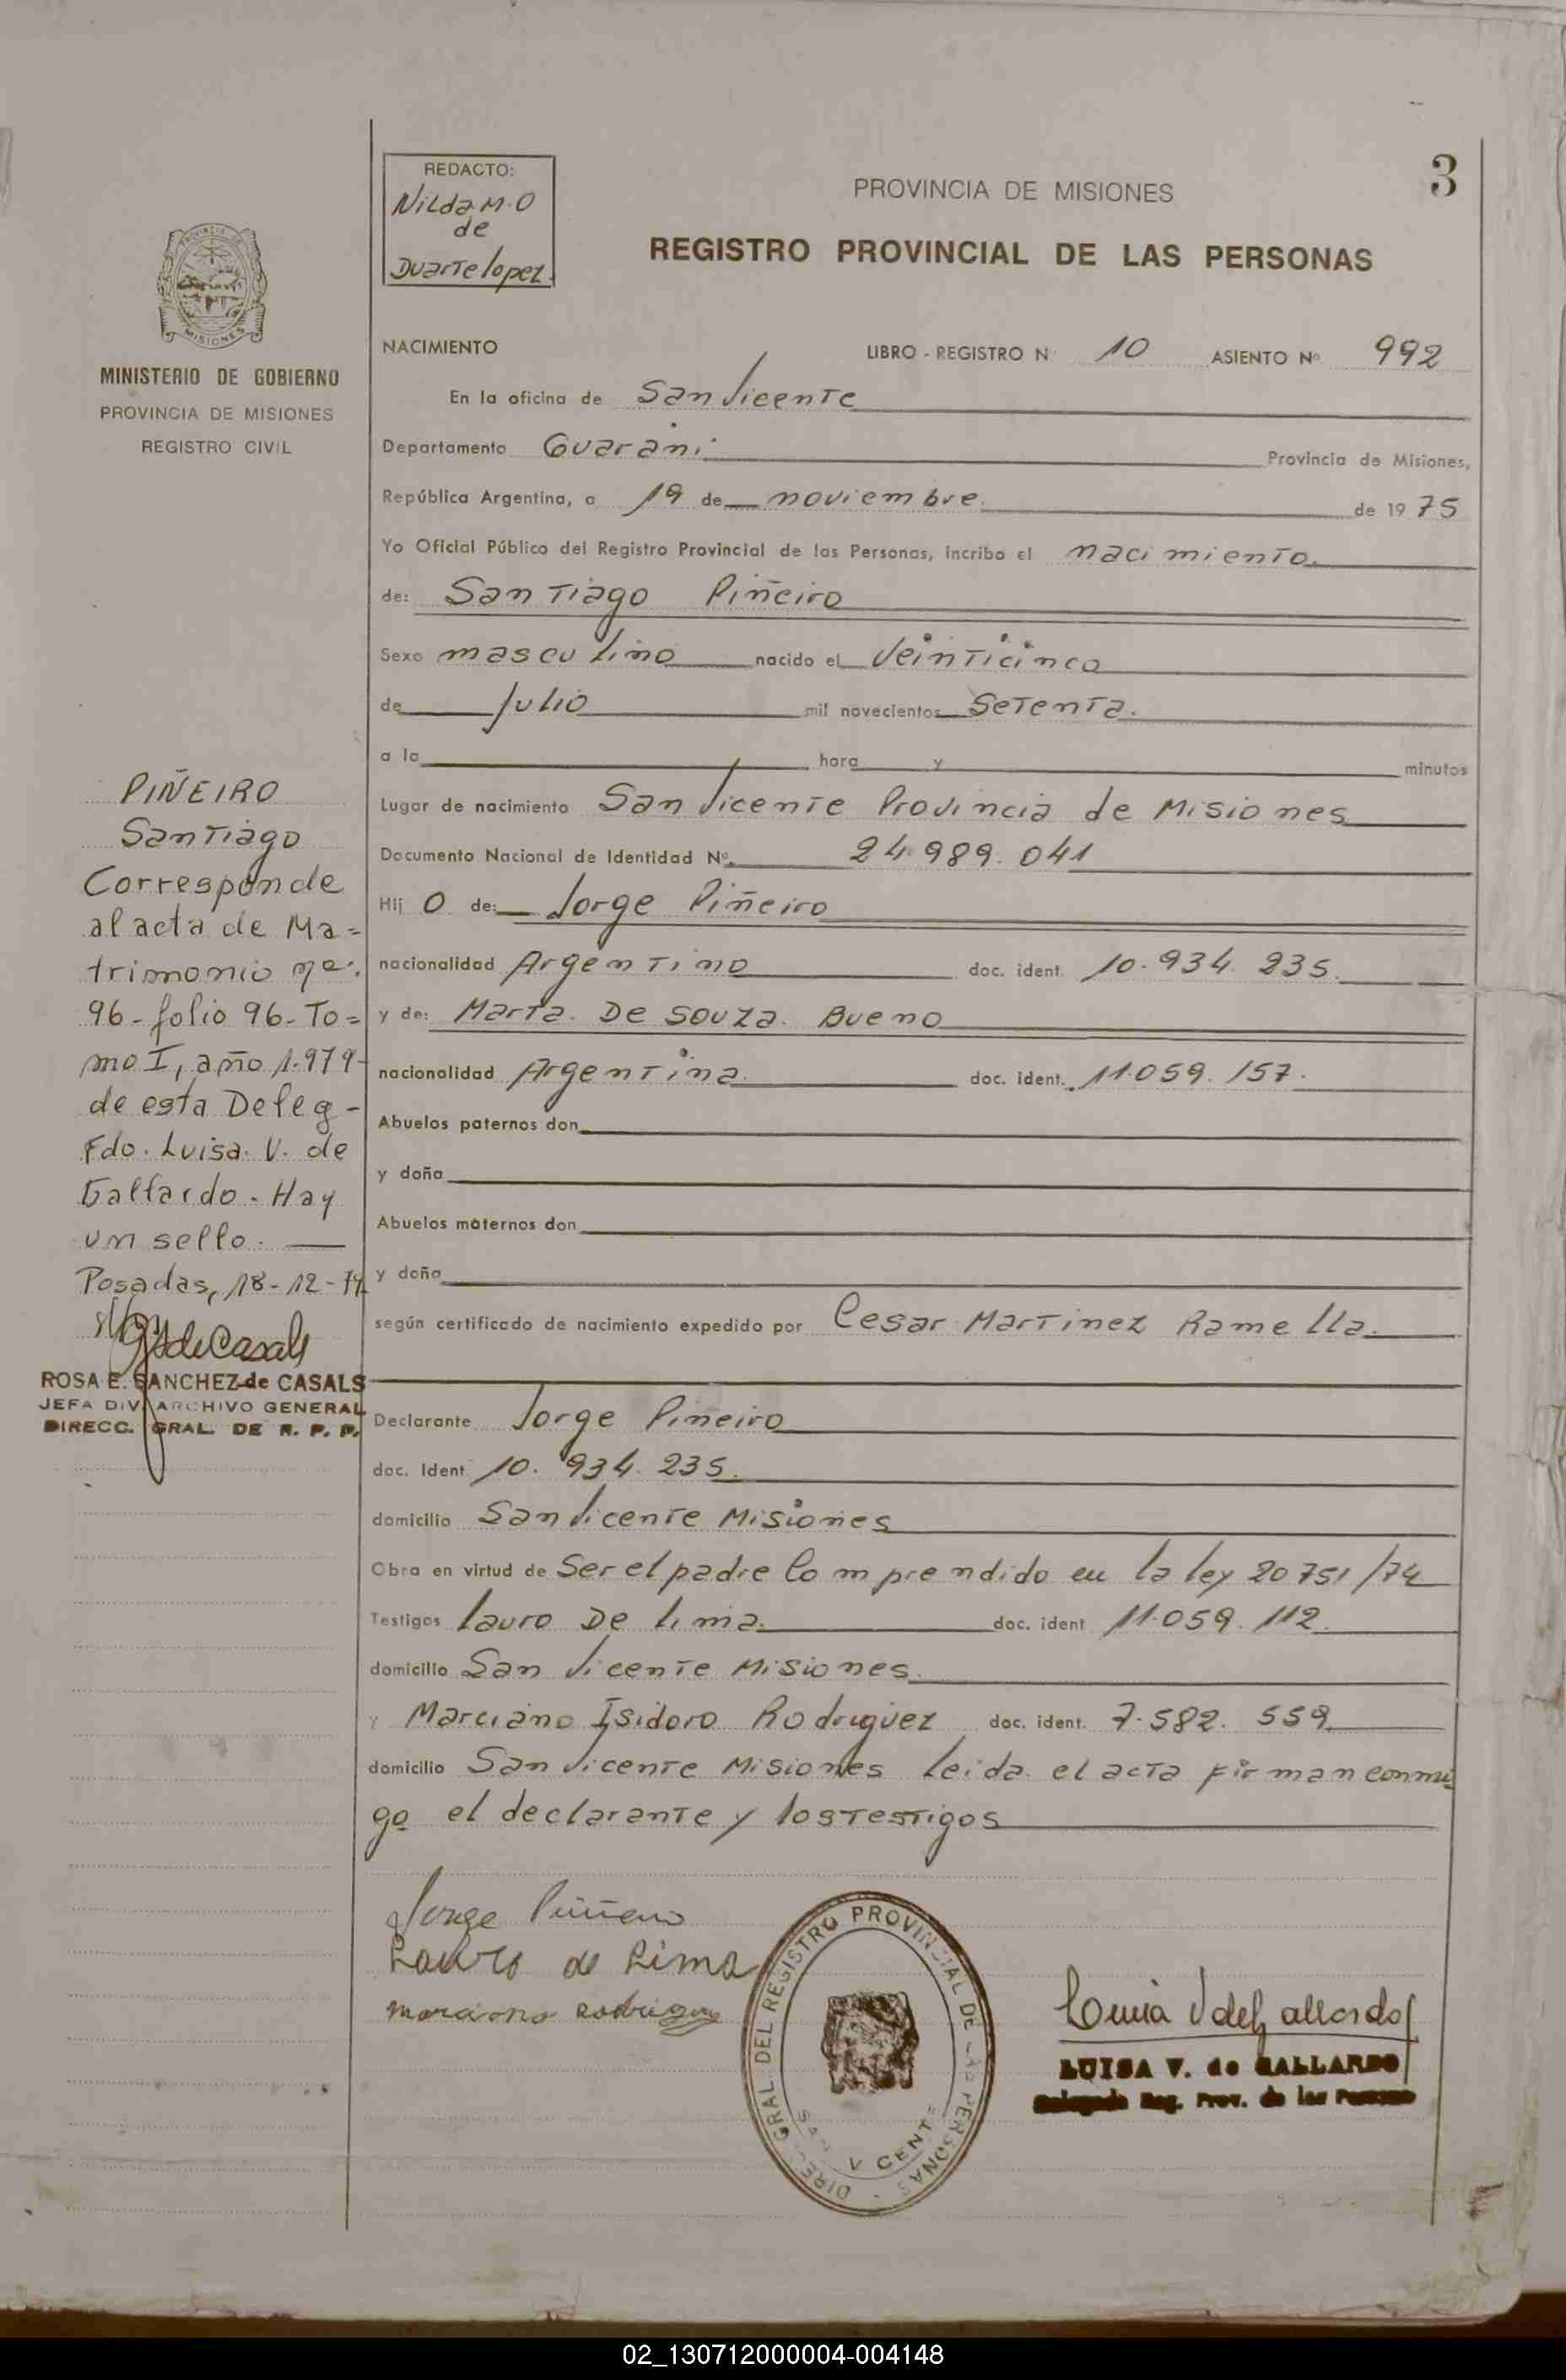 REDACTO:
Nilda M. O
de
Duarte lopez.
3
PROVINCIA DE MISIONES
REGISTRO PROVINCIAL DE LAS PERSONAS
PROVINCIA DE
MISIONES
MINISTERIO DE GOBIERNO
PROVINCIA DE MISIONES
REGISTRO CIVIL
NACIMIENTO LIBRO - REGISTRO N. 10 ASIENTO Nº 992
En la oficina de San Vicente
Departamento Guarani Provincia de Misiones,
República Argentina, a 19 de noviembre. de 1975
Yo Oficial Público del Registro Provincial de las Personas, incribo el nacimiento.
de: Santiago Piñeiro
Sexo masculino nacido el Veinticinco
de Julio mil novecientos Setenta.
a la hora y minutos
Lugar de nacimiento San Vicente Provincia de Misiones
Documento Nacional de Identidad Nº 24.989.041
Hij O de: Jorge Piñeiro
nacionalidad Argentino doc. ident. 10.934.235.
y de: Marta. De Souza. Bueno
nacionalidad Argentina. doc. ident. 11.059.157.
Abuelos paternos don
y doña
Abuelos maternos don
y doña
según certificado de nacimiento expedido por Cesar Martinez Ramella.
Declarante Jorge Piñeiro
doc. Ident. 10.934.235.
domicilio San Vicente Misiones
Obra en virtud de Ser el padre Comprendido en la ley 20751/74
Testigos Lauro De Lima. doc. ident 11.059.112.
domicilio San Vicente Misiones.
y Marciano Isidoro Rodriguez doc. ident. 7.582.559.
domicilio San Vicente Misiones Leida el acta firman conmi
go el declarante y los testigos
PIÑEIRO
Santiago
Corresponde
al acta de Ma=
trimonio nº:
96 - folio 96 - To=
mo I, año 1.979-
de esta Deleg-
Fdo. Luisa. V. de
Gallardo. Hay
un sello.
Posadas, 18-12-79
ROSA E. SANCHEZ de CASALS
JEFA DIV. ARCHIVO GENERAL
DIRECC. GRAL. DE R. P. P.
Jorge Piñeiro
Lauro de Lima
Marciano Rodriguez
DIREC. GRAL. DEL REGISTRO PROVINCIAL DE LAS PERSONAS
SAN VICENTE
Luisa V de Gallardo
LUISA V. de GALLARDO
Delegada Reg. Prov. de las Personas
02_130712000004-004148